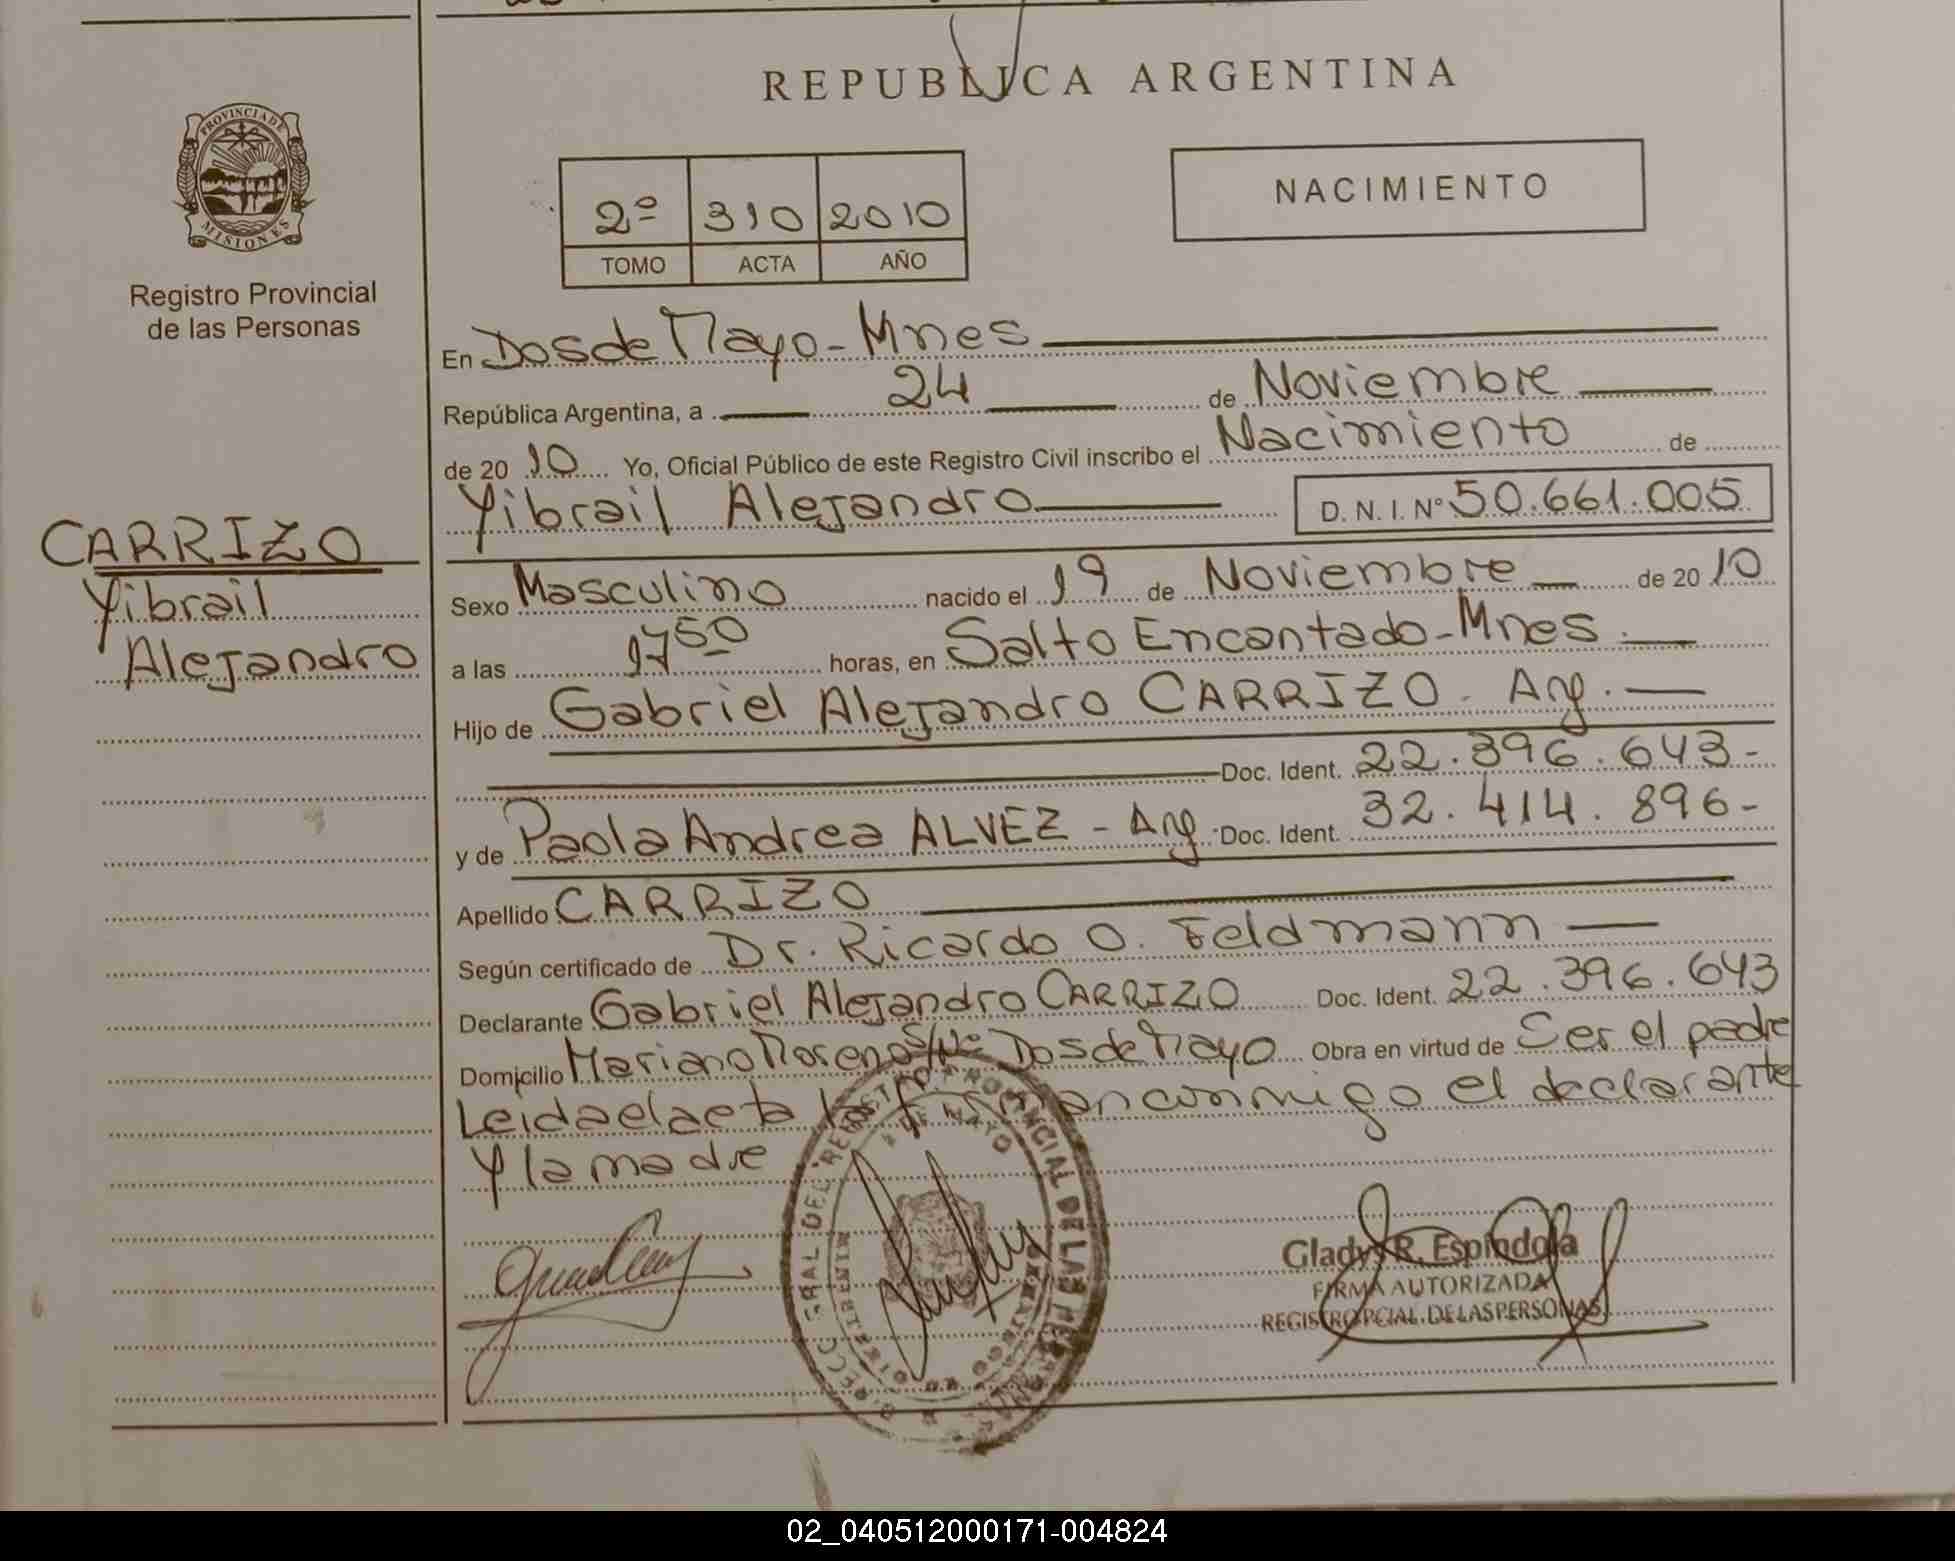 REPUBLICA ARGENTINA
PROVINCIA DE
MISIONES
Registro Provincial
de las Personas
2º 310 2010
TOMO ACTA AÑO
NACIMIENTO
CARRIZO
Yibrail
Alejandro
En Dos de Mayo - Mnes
República Argentina, a 24 de Noviembre
de 20 10 Yo, Oficial Público de este Registro Civil inscribo el Nacimiento de
Yibrail Alejandro D. N. I. Nº 50.661.005
Sexo Masculino nacido el 19 de Noviembre de 20 10
a las 17 50 horas, en Salto Encantado - Mnes.
Hijo de Gabriel Alejandro CARRIZO - Arg.
Doc. Ident. 22.396.643-
y de Paola Andrea ALVEZ - Arg. Doc. Ident. 32.414.896-
Apellido CARRIZO
Según certificado de Dr. Ricardo O. Feldmann
Declarante Gabriel Alejandro CARRIZO Doc. Ident. 22.396.643
Domicilio Mariano Moreno S/Nº Dos de Mayo Obra en virtud de Ser el padre
Leida el acta la firman conmigo el declarante
y la madre
Gladys R. Espindola
FIRMA AUTORIZADA
REGISTRO PCIAL. DE LAS PERSONAS
02_040512000171-004824